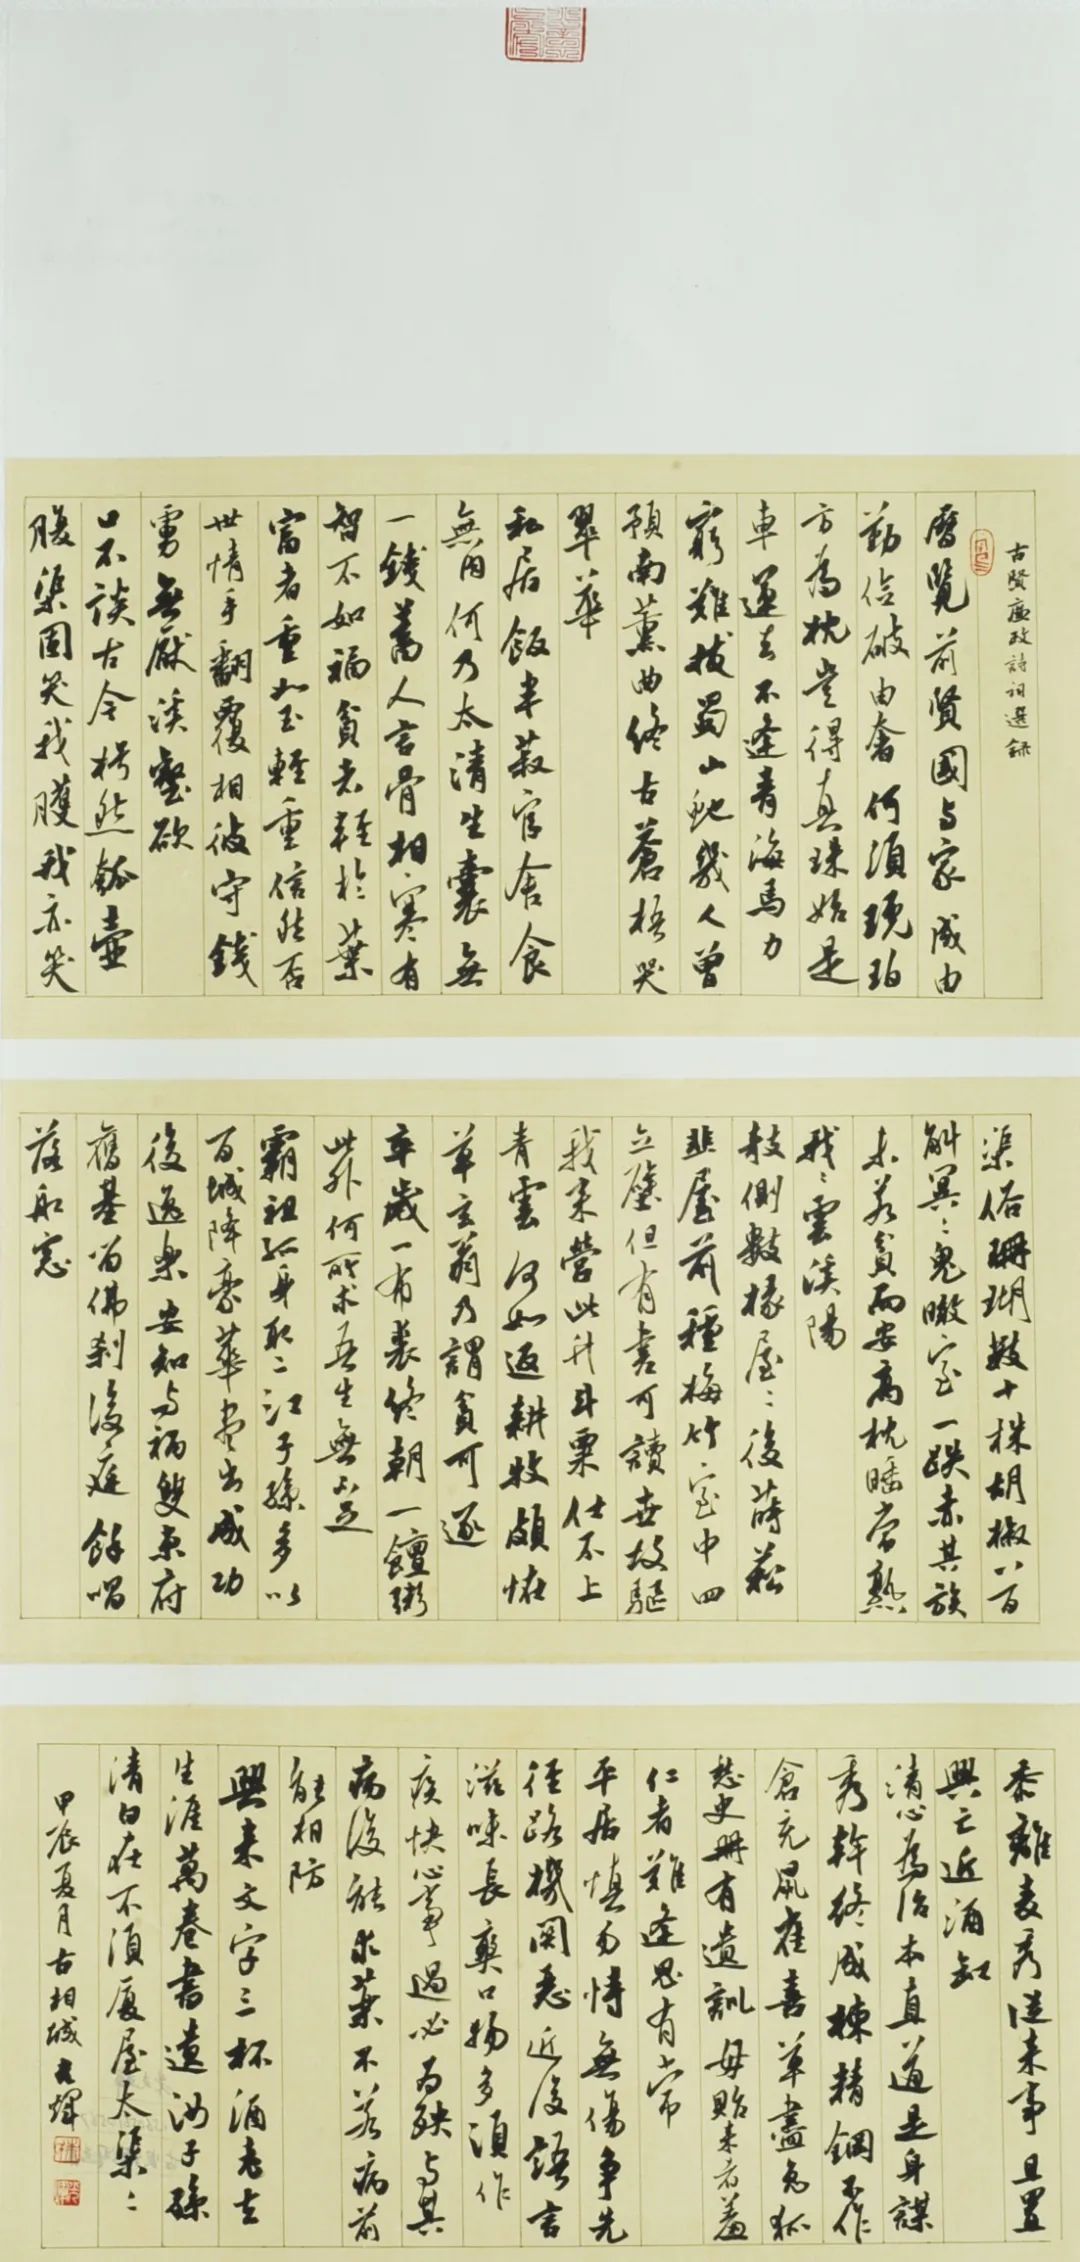 古賢廉政詩詞選録
曆覽前賢國与家成由
勤儉破由奢何須琥珀
方為枕豈得真珠始是
車運去不逢青海馬力
窮難拔蜀山蛇幾人曾
預南薰曲終古蒼梧哭
翠華
私居飯半菽官舍食
無肉何乃太清生囊無
一錢蓄人言骨相寒有
智不如福貧者輕於葉
富者重如玉輕重信然否
世情手翻覆相彼守錢
虜無厭溪壑欲
口不談古今枵然瓠壺
腹渠固笑我朣我亦笑
渠俗珊瑚數十株胡椒八百
斛冥冥鬼瞰室一跌赤其族
未若貧而安高枕睡常熟
我我雲溪陽
敧側數椽屋屋後蒔菘
韭屋前種梅竹室中四
立壁但有書可讀世故驅
我来營此升斗粟仕不上
青雲何如返耕牧頗怪
草玄翁乃謂貧可逐
卒歲一布裘終朝一饘粥
此外何所求吾生無不足
霸祖孤身取二江子孫多以
百城降豪華盡出成功
後逸樂安知与禍雙東府
舊基留佛刹後庭餘唱
落船窓
黍離麦秀從来事且置
興亡近酒缸
清心為治本直道是身謀
秀幹終成棟精鋼不作
倉充鼠雀喜草盡兔狐
愁史册有遺訓毋貽来者羞
仁者難逢思有常
平居慎勿恃無傷争先
徑路機関惡近後語言
滋味長爽口物多須作
疾快心事過必為殃与其
病後能求藥不若病前
能相防
興来文字三杯酒老去
生涯萬卷書遺汝子孫
清白在不須廈屋太渠渠
甲辰夏月古相城